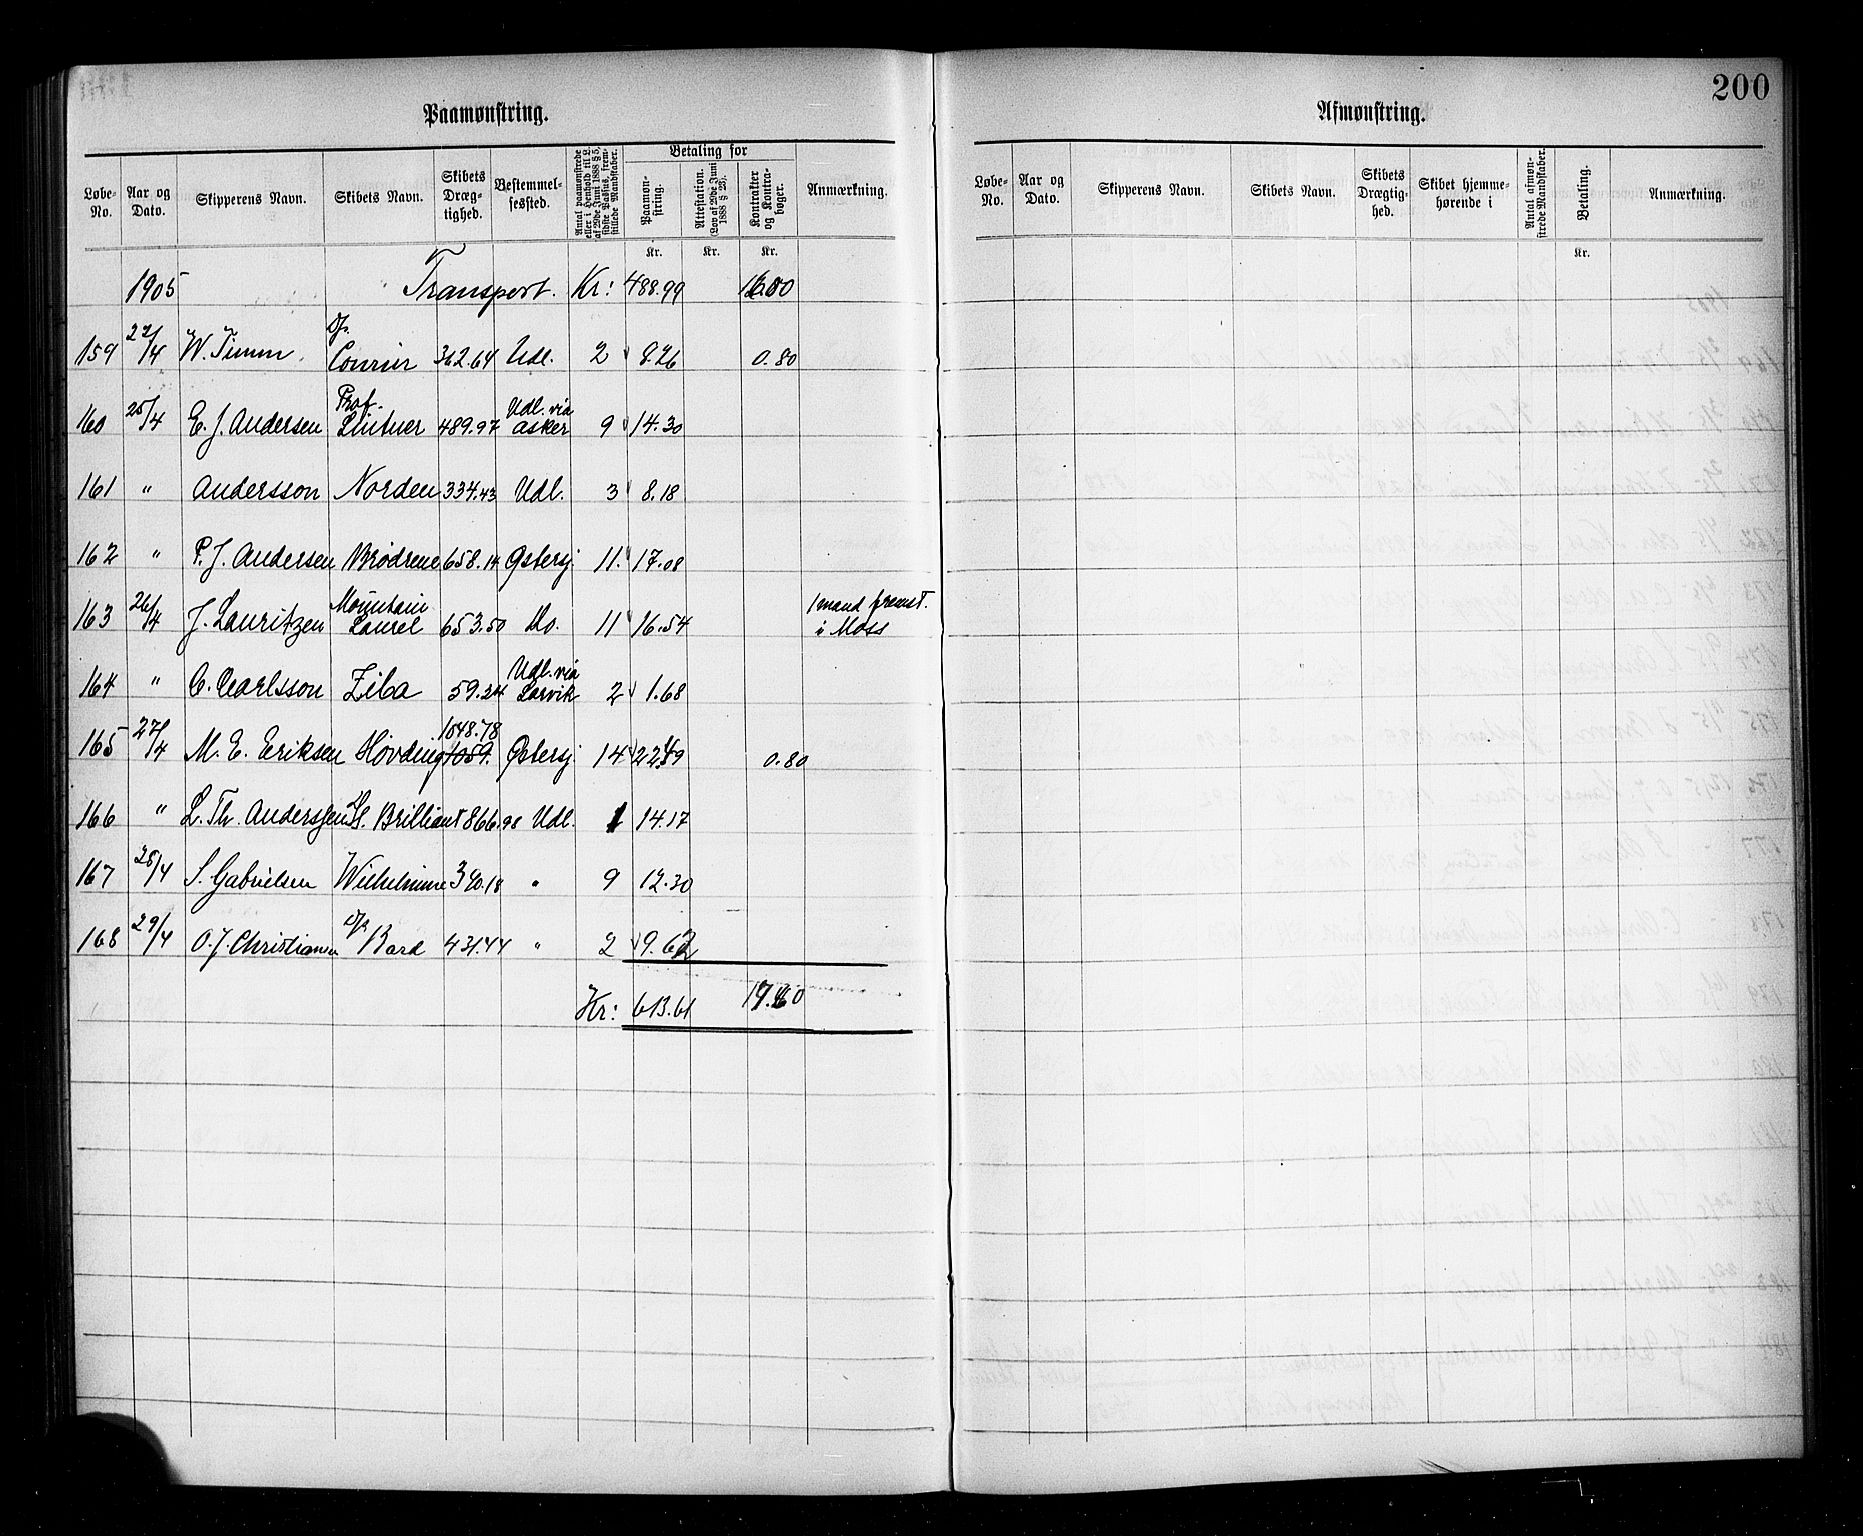 200
Paamønstring.
Løbe-No. Aar og Dato. Skipperens Navn. Skibets Navn. Skibets Dræg-tighed. Bestemmel-sessted. Antal paamønstrede eller i Henhold til L. af 29de Juni 1888 § 5, sidste Passus, frem-stillede Mandskaber. Betaling for Paamøn-string. Attestation. (Lov af 29de Juni 1888 § 26). Kontrakter og Kontra-bøger. Anmærkning.
Kr. Kr. Kr.
1905 Transport. Kr: 488.99 16.00
159 22/4 W. Timm Ds. Courier 362.64 Udl. 2 8.26 0.80
160 25/4 E. J. Andersen Prof. Lintner 489.97 Udl. via Asker 9 14.30
161 " Andersson Norden 334.43 Udl. 3 8.18
162 " P. J. Andersen Brödrene 658.14 Østersj. 11. 17.08
163 26/4 J. Lauritzen Mountain Laurel 653.50 Do. 11 16.54 1 mand fremst. i Moss
164 " C. Carlsson Ziba 59.24 Udl. via Larvik 2 1.68
165 27/4 M. E. Eriksen Høvding 1048.78 1059. Østersj. 14 22.49 0.80
166 " L. Th. Anderssen Brilliant 866.98 Udl. 1 14.17
167 28/4 S. Gabrielsen Wilhelmine 340.18 " 9 12.30
168 29/4 O. J. Christiansen Ds Bard 431.44 " 2 9.62
Kr: 613.61 17.60
Afmønstring.
Løbe-No. Aar og Dato. Skipperens Navn. Skibets Navn. Skibets Drægtig-hed. Skibet hjemme-hørende i Antal afmøn-strede Mandskaber. Betaling. Anmærkning.
Kr.